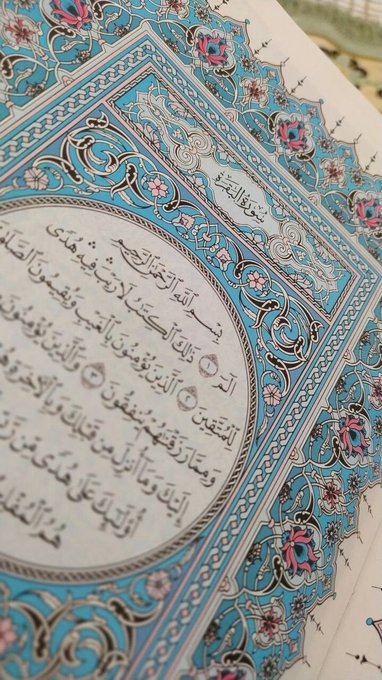 سُورَةُ الْبَقَرَةِ
بِسْمِ اللَّهِ الرَّحْمَٰنِ الرَّحِيمِ
الٓمٓ ١ ذَٰلِكَ الْكِتَٰبُ لَا رَيْبَ فِيهِ هُدًى
لِلْمُتَّقِينَ ٢ الَّذِينَ يُؤْمِنُونَ بِالْغَيْبِ وَيُقِيمُونَ
وَمِمَّا رَزَقْنَٰهُمْ يُنفِقُونَ ٣ وَالَّذِينَ يُؤْمِنُونَ
إِلَيْكَ وَمَا أُنزِلَ مِن قَبْلِكَ وَبِالْآخِرَةِ
أُولَٰئِكَ عَلَىٰ هُدًى مِّن
هُمُ